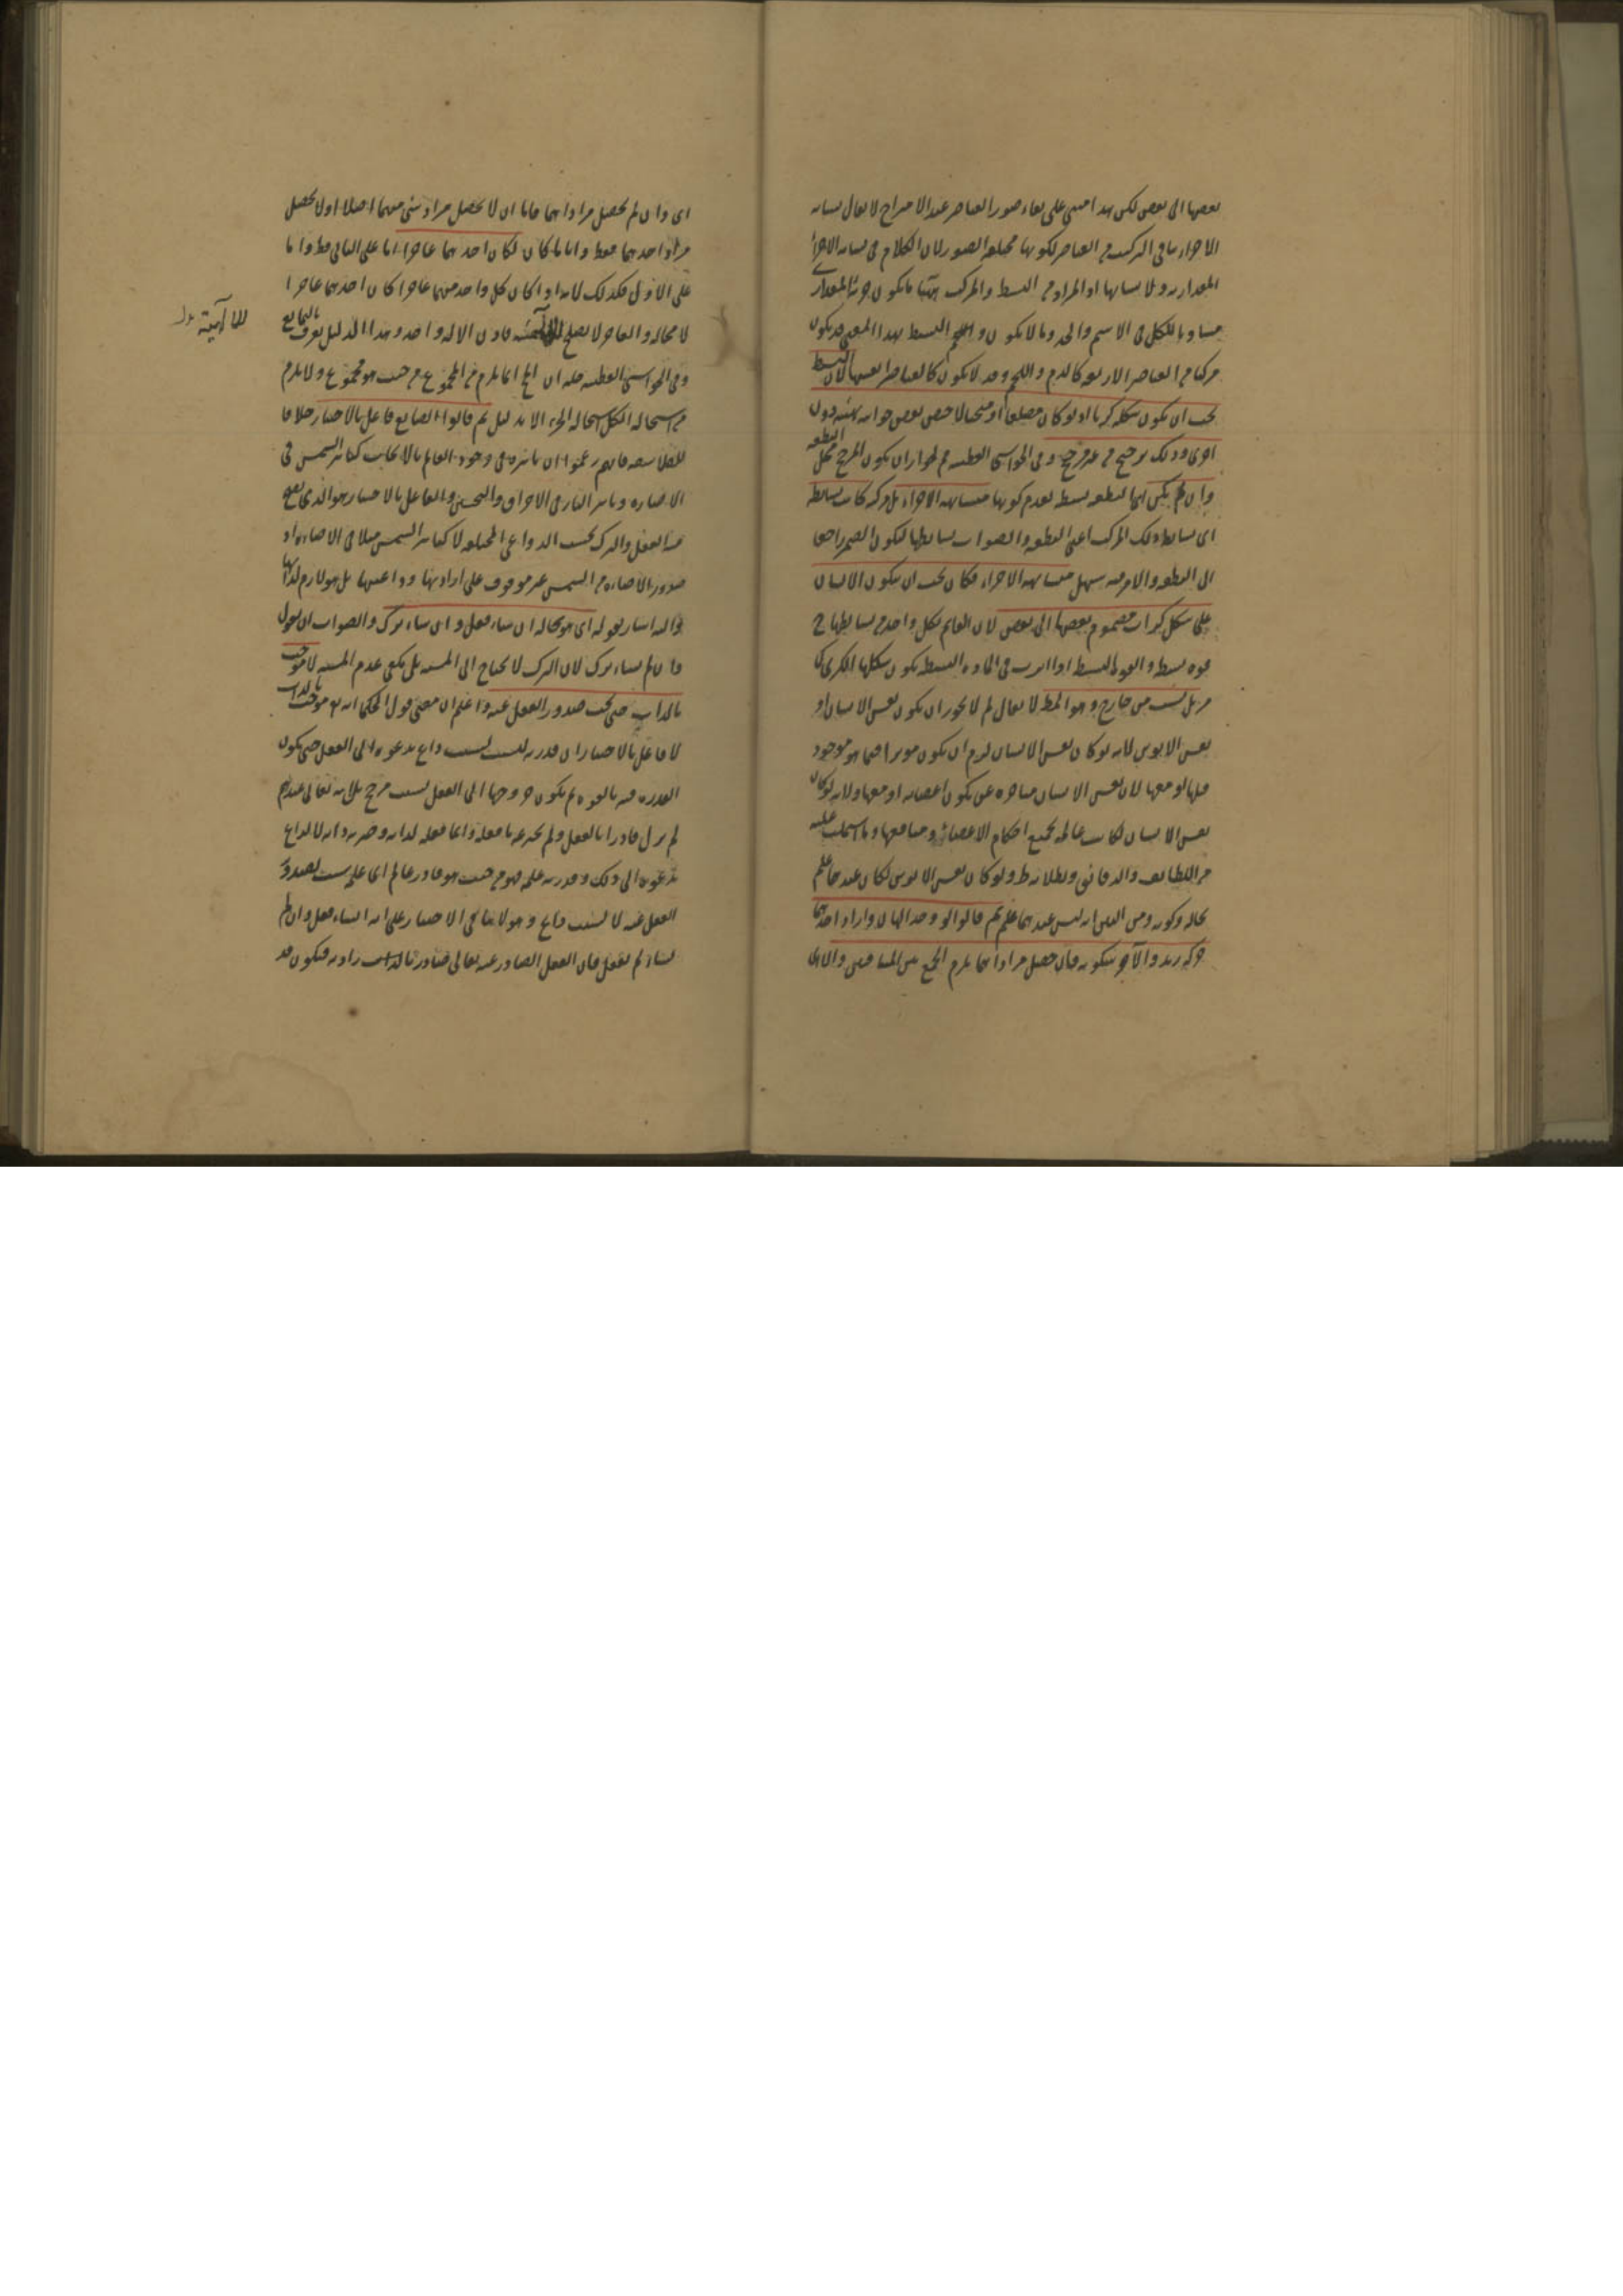 بعضها الى بعض لكن هذا مبنى على بقاء صور العناصر عند الامتزاج لا يقال تشابه
الاجزاء ينافى التركيب من العناصر لكونها مختلفة الصور لان الكلام فى تشابه الاجزاء
المقدارية ولا تشابهها اذ المراد من البسيط والمركب ههنا ما يكون جزئه المقدارى
مساويا للكل فى الاسم والحد وما لا يكون والجسم البسيط بهذا المعنى قد يكون
مركبا من العناصر الاربعة كالدم واللحم وقد لا يكون كالعناصر انفسها لان البسيط
يجب ان يكون شكله كريا اذ لو كان مضلعا او منحنيا لاختص بعض جوانبه بهيئة دون
اخرى وذلك ترجيح من غير مرجح وفى الحواشى القطبية لجواز ان يكون المرجح محل النطفة
وان لم يكن اى النطفة بسيطة لعدم كونها متشابهة الاجزاء بل مركبة كانت بسائطه
اى بسائط ذلك المركب اعنى النطفة والصواب بسائطها ليكون الضمير راجعا
الى النطفة والامر فيه سهل متشابهة الاجزاء فكان يجب ان يكون الانسان
على شكل كرات مضموم بعضها الى بعض لان القائم بكل واحد من بسائطها ح
قوة بسيطة والقوة البسيطة اذا اثرت فى المادة البسيطة يكون شكلها الكرى
من خارج وهو المط لا يقال لم لا يجوز ان يكون نفس الانسان او
نفس الابوين لانه لو كان نفس الانسان لزم ان يكون موثرا فيما هو موجود
قبلها او معها لان نفس الانسان متاخرة عن تكون اعضائه او معها ولانه لو كان
نفس الانسان لكانت عالمة بجميع احكام الاعضاء ومنافعها وما اشتملت عليه
من اللطائف والدقائق وبطلانه ظ ولو كان نفس الابوين لكان عندهما علم
بحاله وكونه ومن البين انه ليس عندهما علم ثم قالوا لو وجد الهان واراد احدهما
حركة زيد والآخر سكونه فان حصل مراداهما يلزم الجمع بين المتنافيين والا
اى وان لم يحصل مراداهما فاما ان لا يحصل مراد شئ منهما اصلا او لا يحصل
مراد احدهما فقط واياما كان لكان احدهما عاجزا اما على الثانى فظ واما
على الاول فكذلك لانه اذا كان كل واحد منهما عاجزا كان احدهما عاجزا
لا محالة والعاجز لا يصلح للالهية فاذن الاله واحد وهذا الدليل يعرف بالتمانع
وفى الحواشى القطبية فيه ان المح انما يلزم من المجموع من حيث هو مجموع ولا يلزم
من استحالة الكل استحالة الجزء الا بدليل ثم قالوا الصانع فاعل بالاختيار خلافا
للفلاسفة فانهم زعموا ان تاثيره فى وجود العالم بالايجاب كتاثير الشمس فى
الاضاءة وتاثير النار فى الاحراق والتسخين والفاعل بالاختيار هو الذى يصح
منه الفعل والترك بحسب الدواعى المختلفة لا كتاثير الشمس مثلا فى الاضاءة اذ
صدور الاضاءة من الشمس غير موقوف على ارادتها وداعيها بل هو لازم لذاتها
واليه اشار بقوله اى هو بحالة ان شاء فعل وان شاء ترك والصواب ان يقول
وان لم يشاء ترك لان الترك لا يحتاج الى المشية بل يكفى عدم المشية لا موجب
بالذات حتى يجب صدور الفعل عنه واعلم ان معنى قول الحكماء انه تع موجب بالذات
لا فاعل بالاختيار ان قدرته ليست بسبب داع يدعوه الى الفعل حتى يكون
القدرة فيه بالقوة ثم يكون خروجها الى الفعل بسبب مرجح بل انه تعالى عندهم
لم يزل قادرا بالفعل ولم يخير غير ما فعله وانما فعله لذاته وخيرية ذاته لا لداع
يدعوه الى ذلك وقدرته علمه فهو من حيث هو قادر عالم اى علمه سبب لصدور
الفعل عنه لا بسبب داع وهو لا ينافى الاختيار على انه ان شاء فعل وان لم
يشاء لم يفعل فان الفعل الصادر عنه تعالى صادر بالذات
للالهية بدل